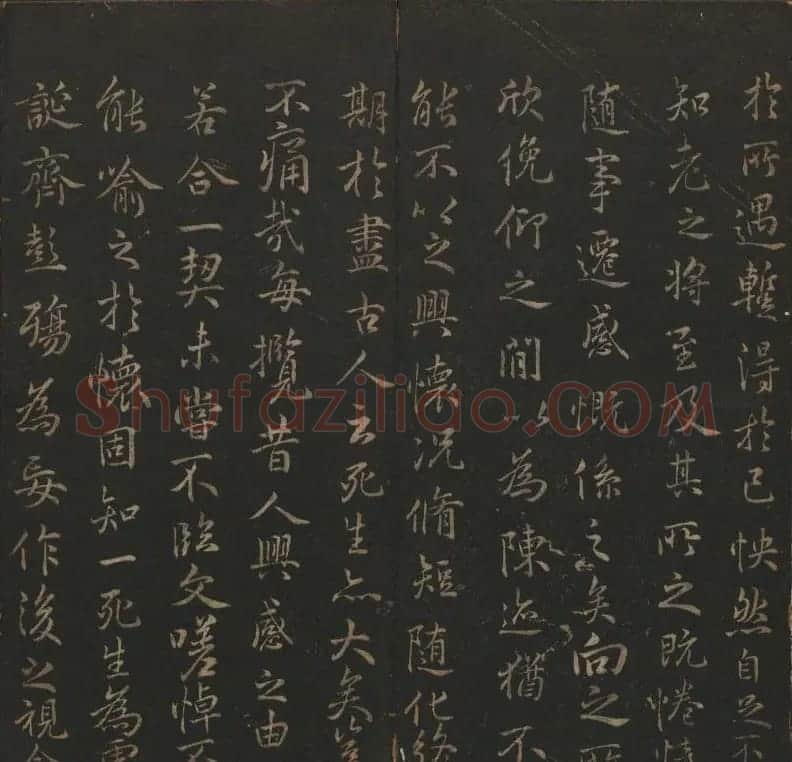 於所遇蹔得於己怏然自足不
知老之將至及其所之既惓情
随事遷感慨係之矣向之所
欣俛仰之間以為陳迹猶不
能不以之興懷况脩短随化終
期於盡古人云死生亦大矣豈
不痛哉每攬昔人興感之由
若合一契未嘗不臨文嗟悼不
能喻之於懷固知一死生為虛
誕齊彭殤為妄作後之視今
Shufaziliao.COM